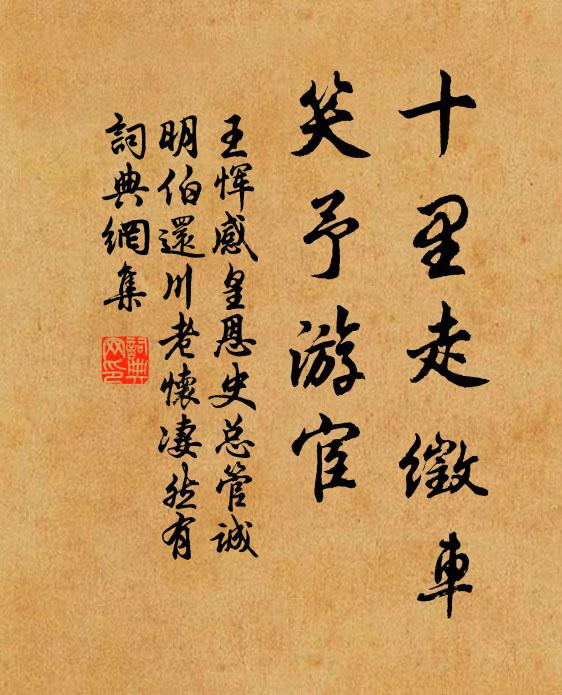 十里走徵車
笑予游宦
王惲感皇恩史总管诚
明伯還川老懷凄然有
詞典網集
詞典
网印